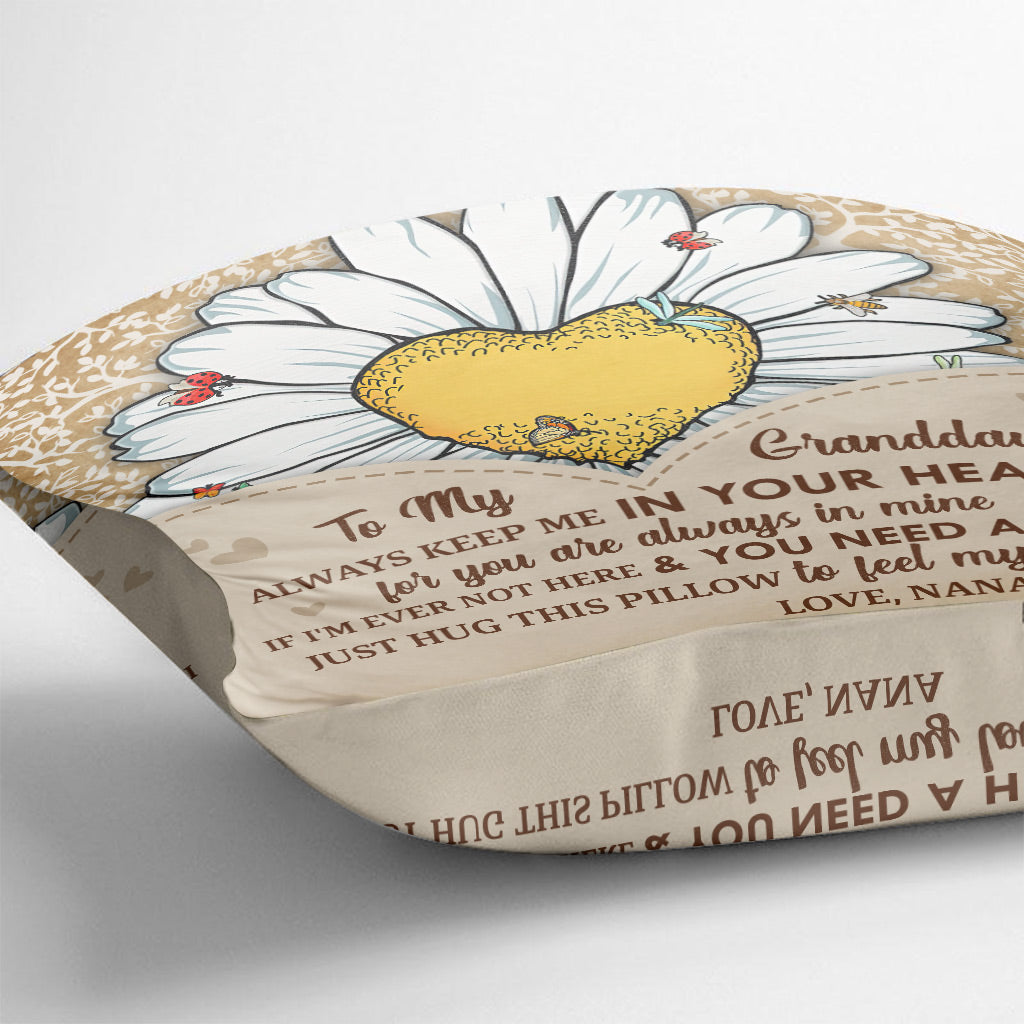 To My Granddau
ALWAYS KEEP ME IN YOUR HEA
for you are always in mine
IF I'M EVER NOT HERE & YOU NEED A
JUST HUG THIS PILLOW to feel my
LOVE, NANA
LOVE, NANA
T HUG THIS PILLOW to feel my lo
HERE & YOU NEED A H